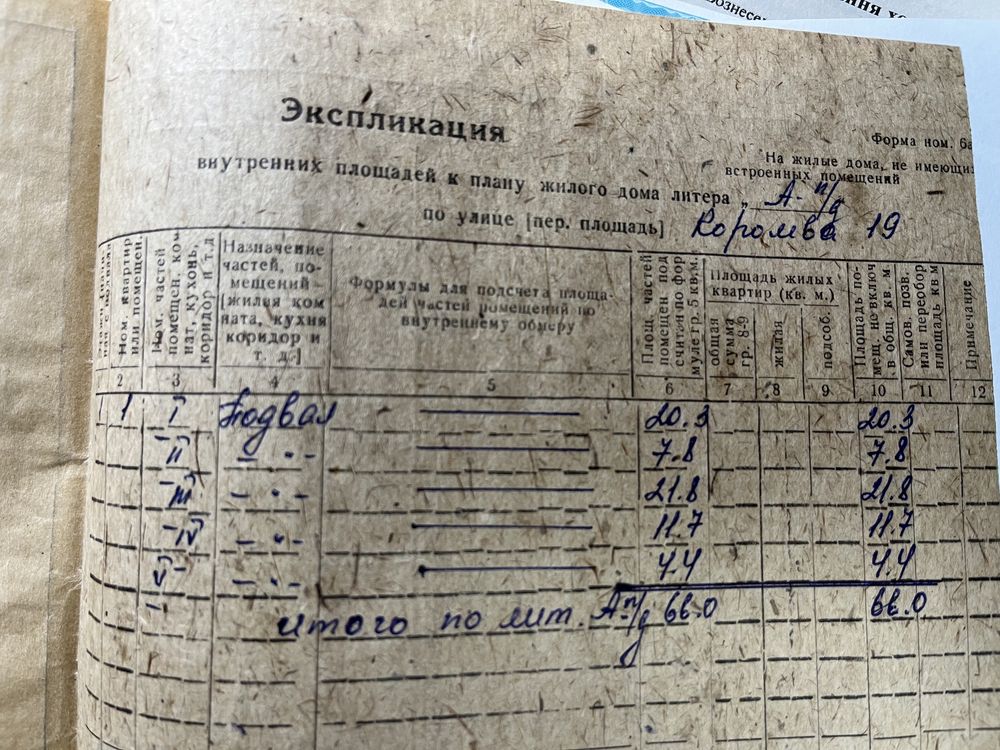 вознесе
ния х
Экспликация
Форма ном. 6а
На жилые дома, не имеющи
встроенных помещений
внутренних площадей к плану жилого дома литера „ А- п/д
по улице [пер. площадь] 19
Ном. квартир или помещен.
Ном. частей помещен. ком нат, кухонь, коридор и т.д
Назначение частей, помещений - [жилая ком ната, кухня коридор и т. д.]
Формулы для подсчета площадей частей помещений по внутреннему обмеру
Площ. частей помещен под считан по фор муле гр. 5 кв.м.
Площадь жилых квартир (кв. м.)
общая сумма гр. 8-9
жилая
подсоб.
Площадь помещ. не включ в общ. кв. м.
Самов. возв. или переобор площадь кв м
Примечание
2 3 4 5 6 7 8 9 10 11 12
1 I Подвал 20.3 20.3
II — " — 7.8 7.8
III — " — 21.8 21.8
IV — " — 11.7 11.7
V — " — 4.4 4.4
итого по лит. А п/д 66.0 66.0